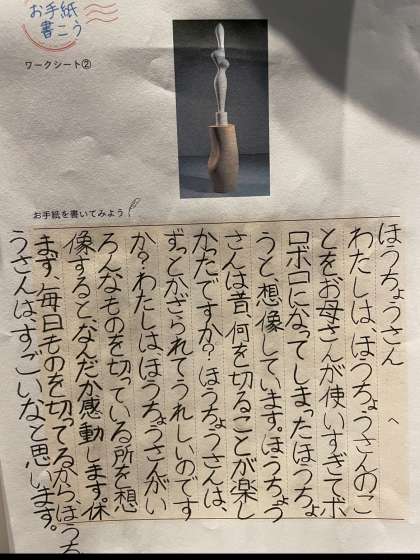 お手紙
書こう
ワークシート②
お手紙を書いてみよう
ほうちょうさんへ
わたしは、ほうちょうさんのこ
とをお母さんが使いすぎてボ
ロボロになってしまったほうちょ
うと、想像しています。ほうちょう
さんは昔、何を切ることが楽し
かったですか?ほうちょうさんは、
ずっとかざられてうれしいのです
か?わたしは、ほうちょうさんがい
ろんなものを切っている所を想
像すると、なんだか感動します。休
まず、毎日ものを切ってるから、ほうち
うさんは、すごいなと思います。